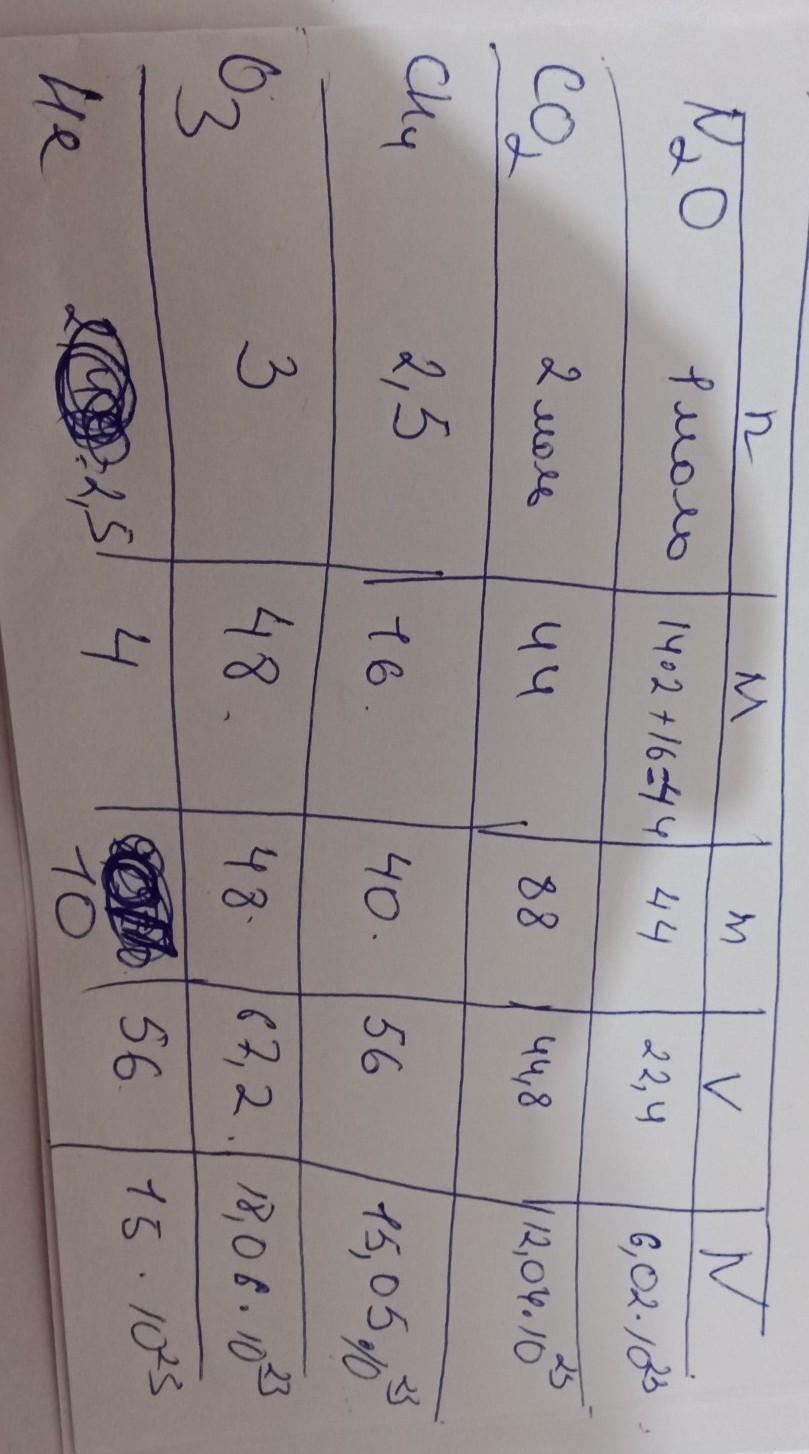 n M m V N
N₂O 1 моль 14·2+16=44 44 22,4 6,02·10²³
CO₂ 2 моль 44 88 44,8 12,04·10²³
CH₄ 2,5 16. 40. 56 15,05·10²³
O₃ 3 48. 48. 67,2. 18,06·10²³
He 2,5 4 10 56. 15·10²³